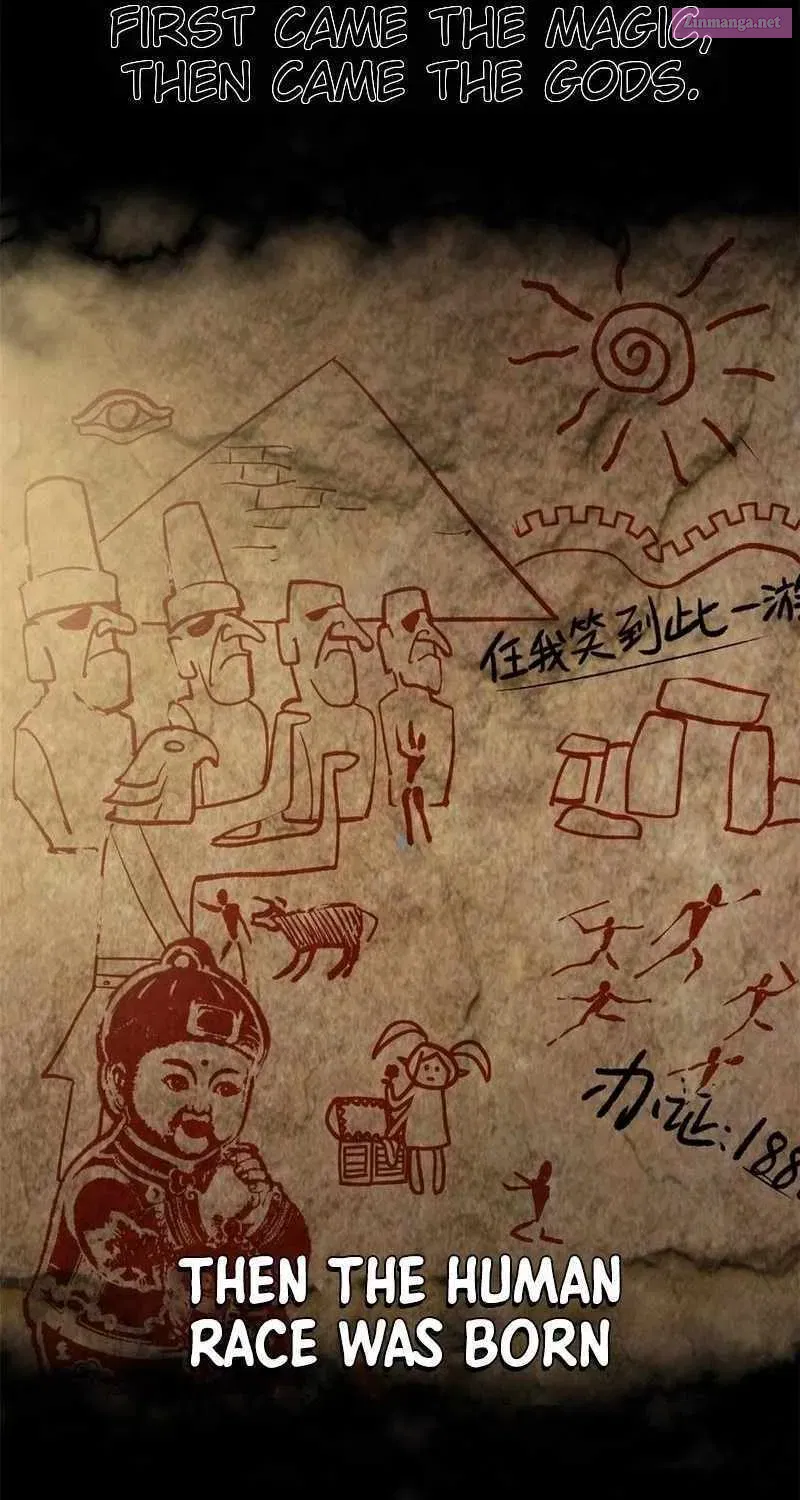 Zinmanga.net
FIRST CAME THE MAGIC,
THEN CAME THE GODS.
任我笑到此一游
办证:188
THEN THE HUMAN
RACE WAS BORN